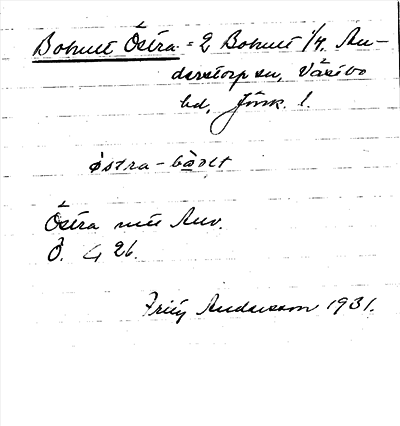 Bohult Östra = 2 Bohult 1/4. An-
derstorp sn, Västbo
hd, Jönk. l.
östra-bàolt
Östra utu Anv.
Ö. 4 26.
Fritz Andersson 1931.